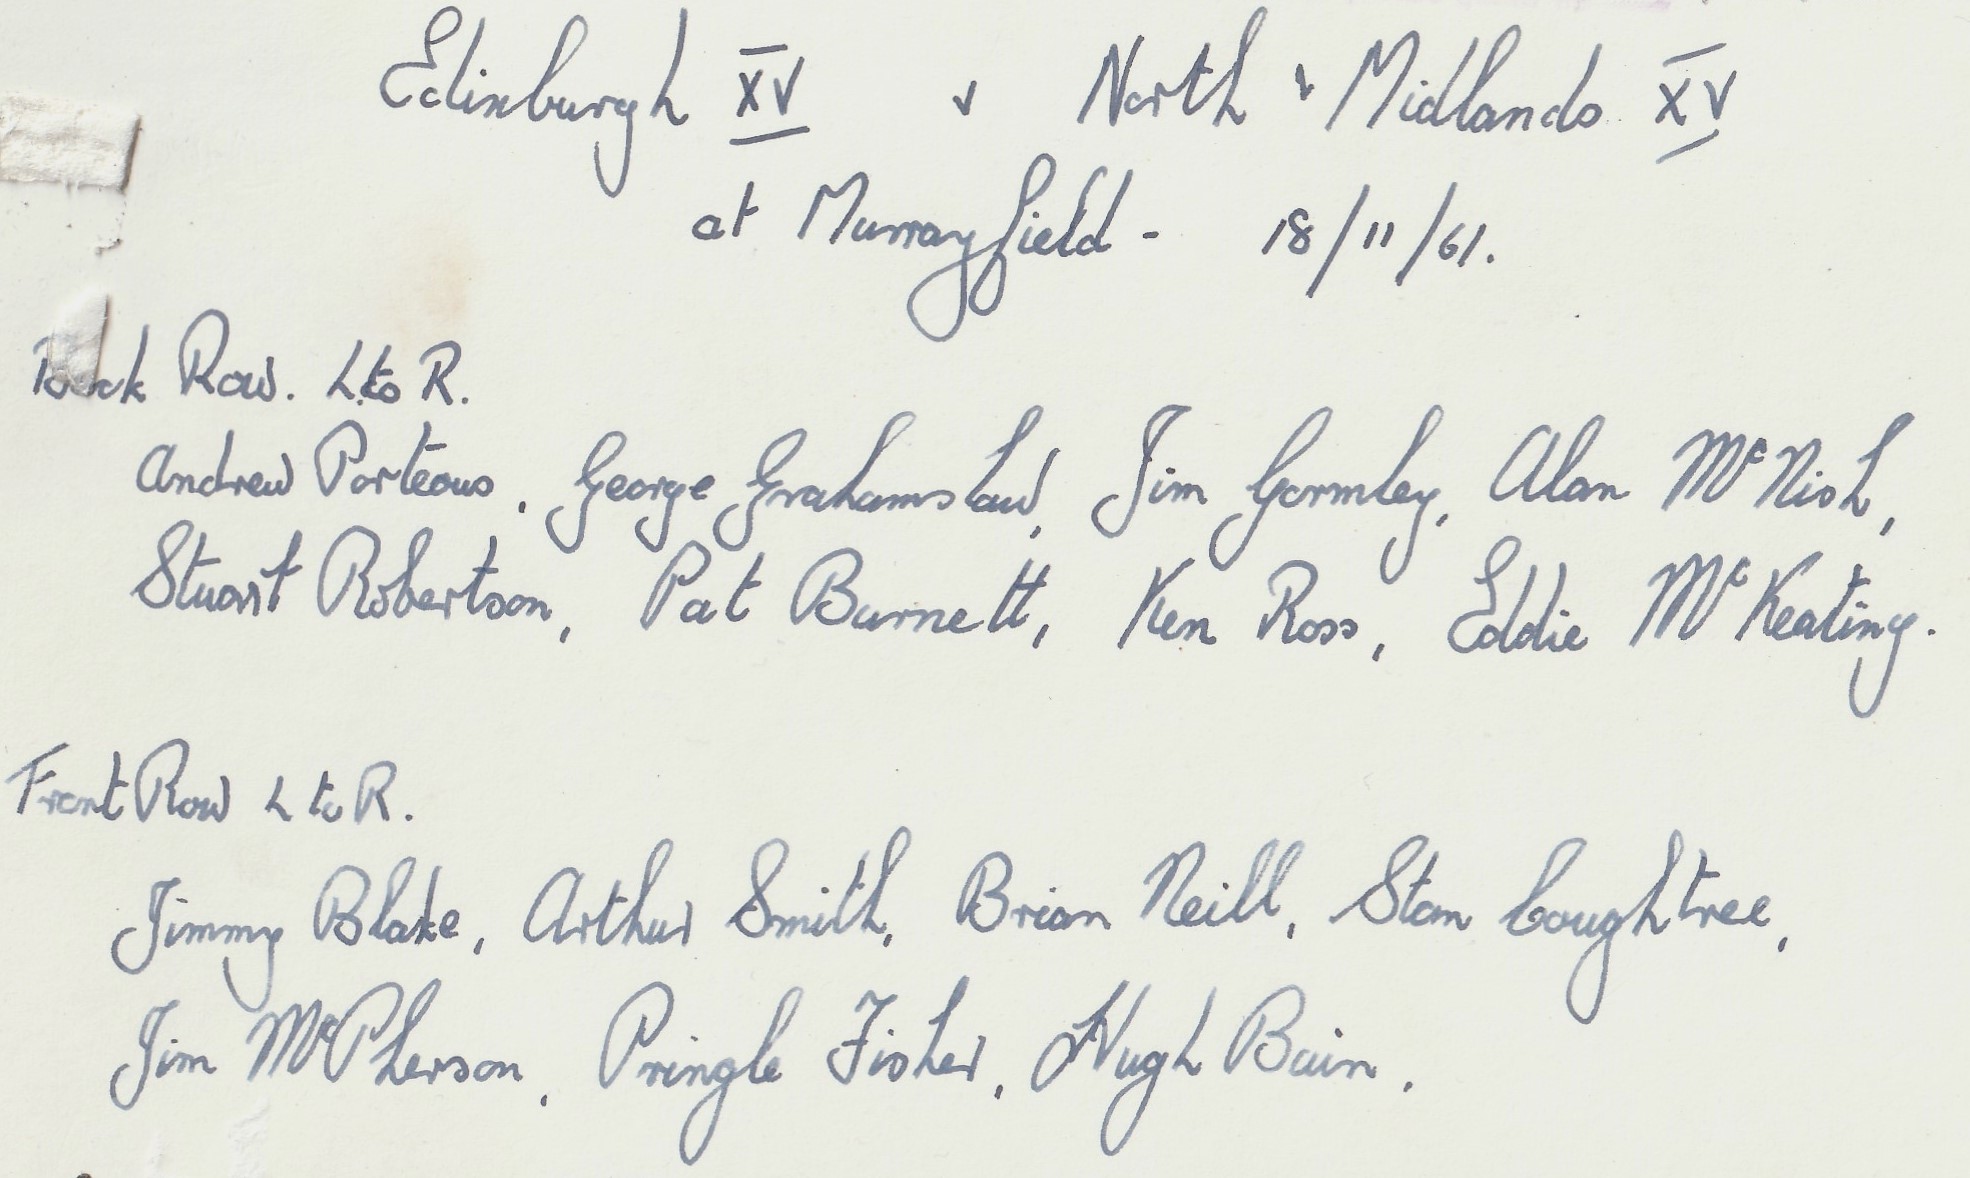 Edinburgh XV v North & Midlands XV
at Murrayfield - 18/11/61.
Back Row. L to R.
Andrew Porteous, George Grahamslaw, Jim Gormley, Alan McNish,
Stuart Robertson, Pat Burnett, Ken Ross, Eddie McKeating.
Front Row L to R.
Jimmy Blake, Arthur Smith, Brian Neill, Stan Coughtree,
Jim McPherson, Pringle Fisher, Hugh Bain.